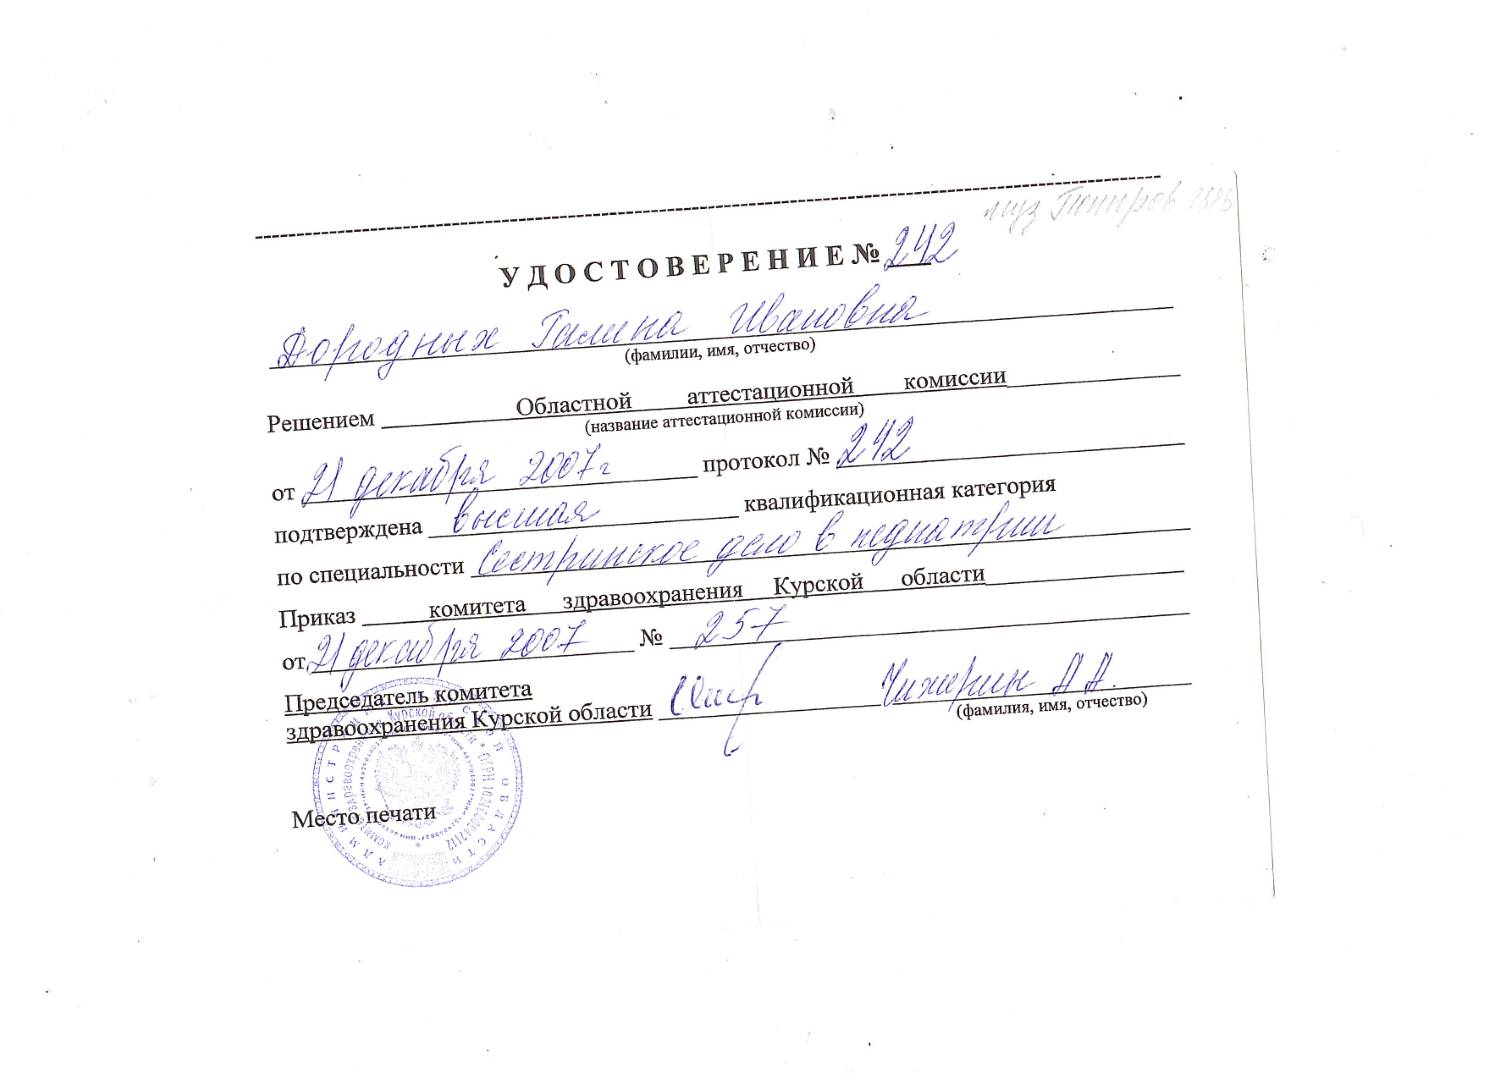 муз
УДОСТОВЕРЕНИЕ № 242
Дородных Галина Ивановна
(фамилии, имя, отчество)
Решением Областной аттестационной комиссии
(название аттестационной комиссии)
от 21 декабря 2007г протокол № 242
подтверждена высшая квалификационная категория
по специальности Сестринское дело в педиатрии
Приказ комитета здравоохранения Курской области
от 21 декабря 2007 № 257
Председатель комитета
здравоохранения Курской области Чихарин А А.
(фамилия, имя, отчество)
Место печати
АДМИНИСТРАЦИЯ КУРСКОЙ ОБЛАСТИ